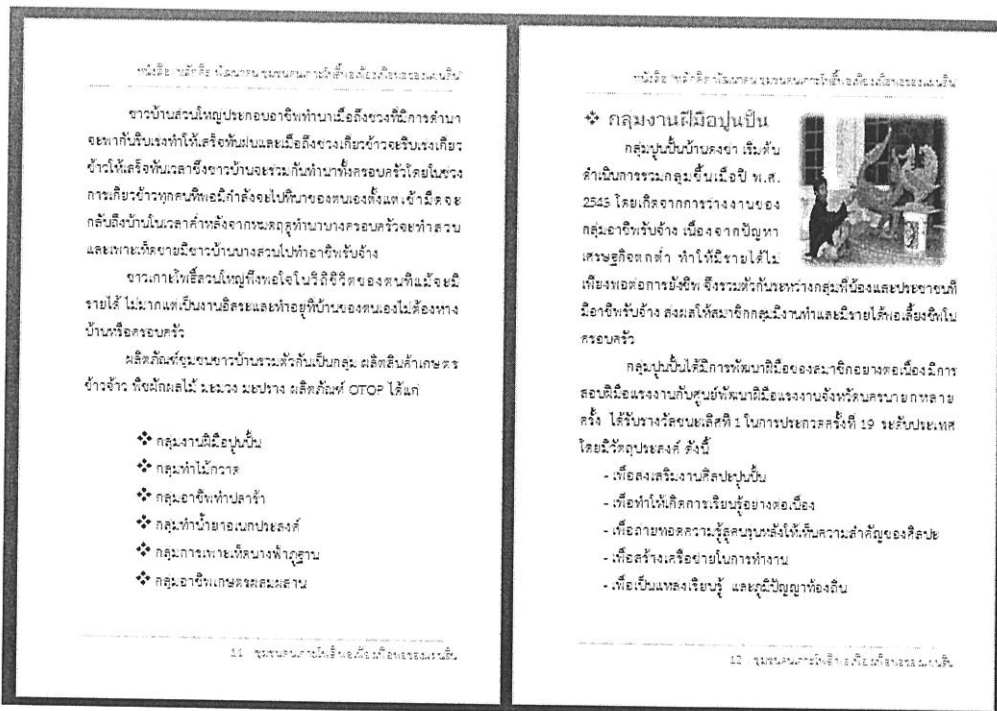 หนังสือ "หลักคิด พัฒนาคน ชุมชนคนเกาะโพธิ์พอเพียงเพื่อพ่อของแผ่นดิน"
ชาวบ้านส่วนใหญ่ประกอบอาชีพทำนาเมื่อถึงช่วงที่มีการดำนา
จะพากันรีบเร่งทำให้เสร็จทันฝนและเมื่อถึงช่วงเกี่ยวข้าวจะรีบเร่งเกี่ยว
ข้าวให้เสร็จทันเวลาซึ่งชาวบ้านจะร่วมกันทำนาทั้งครอบครัวโดยในช่วง
การเกี่ยวข้าวทุกคนที่พอมีกำลังจะไปที่นาของตนเองตั้งแต่เช้ามืดจะ
กลับถึงบ้านในเวลาค่ำหลังจากหมดฤดูทำนาบางครอบครัวจะทำสวน
และเพาะเห็ดขายมีชาวบ้านบางส่วนไปทำอาชีพรับจ้าง
ชาวเกาะโพธิ์ส่วนใหญ่พึงพอใจในวิถีชีวิตของตนที่แม้จะมี
รายได้ ไม่มากแต่เป็นงานอิสระและทำอยู่ที่บ้านของตนเองไม่ต้องห่าง
บ้านหรือครอบครัว
ผลิตภัณฑ์ชุมชนชาวบ้านรวมตัวกันเป็นกลุ่ม ผลิตสินค้าเกษตร
ข้าวจ้าว พืชผักผลไม้ มะม่วง มะปราง ผลิตภัณฑ์ OTOP ได้แก่
❖ กลุ่มงานฝีมือปูนปั้น
❖ กลุ่มทำไม้กวาด
❖ กลุ่มอาชีพทำปลาร้า
❖ กลุ่มทำน้ำยาอเนกประสงค์
❖ กลุ่มการเพาะเห็ดนางฟ้าภูฐาน
❖ กลุ่มอาชีพเกษตรผสมผสาน
11 ชุมชนคนเกาะโพธิ์พอเพียงเพื่อพ่อของแผ่นดิน
หนังสือ "หลักคิด พัฒนาคน ชุมชนคนเกาะโพธิ์พอเพียงเพื่อพ่อของแผ่นดิน"
❖ กลุ่มงานฝีมือปูนปั้น
กลุ่มปูนปั้นบ้านดงข่า เริ่มต้น
ดำเนินการรวมกลุ่มขึ้นเมื่อปี พ.ศ.
2543 โดยเกิดจากการว่างงานของ
กลุ่มอาชีพรับจ้าง เนื่องจากปัญหา
เศรษฐกิจตกต่ำ ทำให้มีรายได้ไม่
เพียงพอต่อการยังชีพ จึงรวมตัวกันระหว่างกลุ่มพี่น้องและประชาชนที่
มีอาชีพรับจ้าง ส่งผลให้สมาชิกกลุ่มมีงานทำและมีรายได้พอเลี้ยงชีพใน
ครอบครัว
กลุ่มปูนปั้นได้มีการพัฒนาฝีมือของสมาชิกอย่างต่อเนื่อง มีการ
สอบฝีมือแรงงานกับศูนย์พัฒนาฝีมือแรงงานจังหวัดนครนายกหลาย
ครั้ง ได้รับรางวัลชนะเลิศที่ 1 ในการประกวดครั้งที่ 19 ระดับประเทศ
โดยมีวัตถุประสงค์ ดังนี้
- เพื่อส่งเสริมงานศิลปะปูนปั้น
- เพื่อทำให้เกิดการเรียนรู้อย่างต่อเนื่อง
- เพื่อถ่ายทอดความรู้สู่คนรุ่นหลังให้เห็นความสำคัญของศิลปะ
- เพื่อสร้างเครือข่ายในการทำงาน
- เพื่อเป็นแหล่งเรียนรู้ และภูมิปัญญาท้องถิ่น
12 ชุมชนคนเกาะโพธิ์พอเพียงเพื่อพ่อของแผ่นดิน